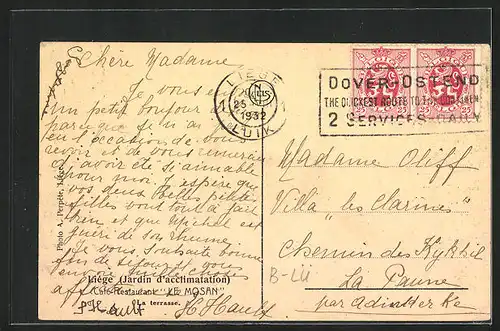 Chère Madame
Je vous
un petit bonjour
parce que je n'ai
l'occasion de vous
revoir et de vous remercier
d'avoir été si aimable
pour moi. J'espère que
vos deux belles petites
filles vont tout à fait
bien et que Michel est
guéri de son rhume
Je vous souhaite bonne
fin de séjour et vous
envoie
Photo A. Perpète, Liége
Liége (Jardin d'acclimatation)
Café-Restaurant "LE MOSAN"
La terrasse.
LIEGE
25
1932
LUIK
DOVER-OSTEND
THE QUICKEST ROUTE TO THE CONTINENT
2 SERVICES DAILY
25
25
Madame Oliff
Villa "les Clarines"
Chemin des
B-LÜ
La Panne
par Adinkerke